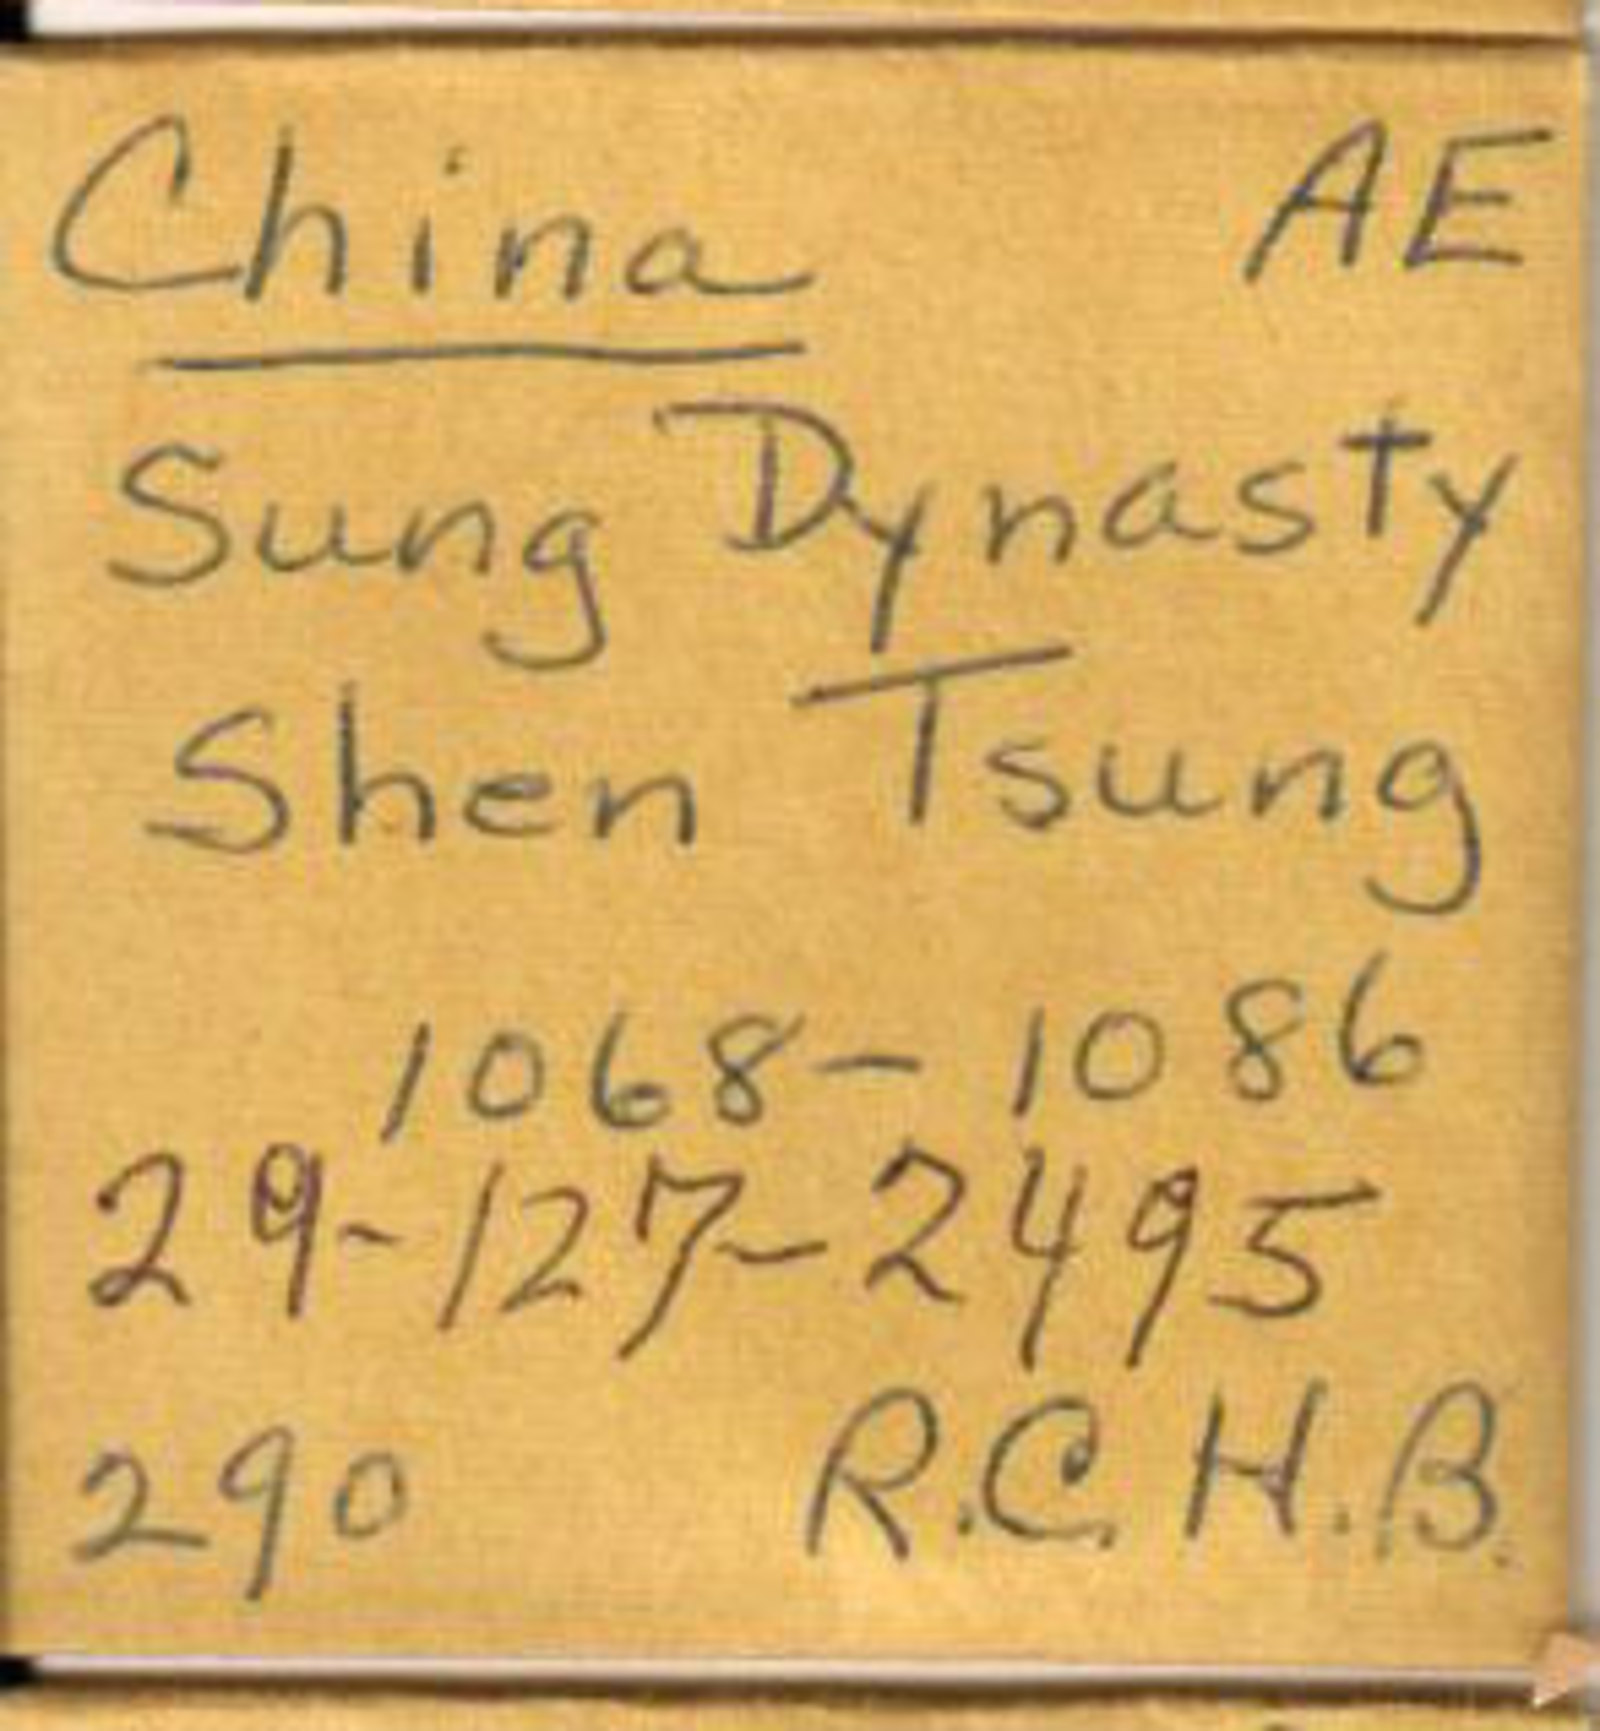 China AE
Sung Dynasty
Shen Tsung
1068-1086
29-127-2495
290 R.C.H.B.